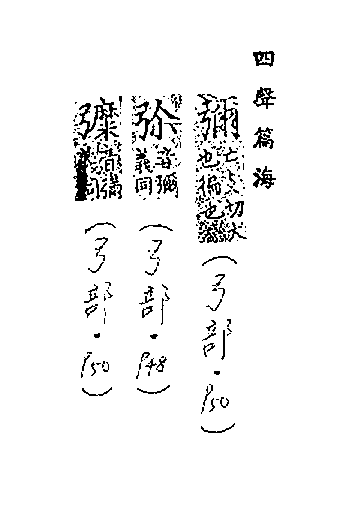 四聲篇海
彌亡支切大也徧也(弓部・P50)
弥音彌義同(弓部・P48)
音彌義同(弓部・P50)